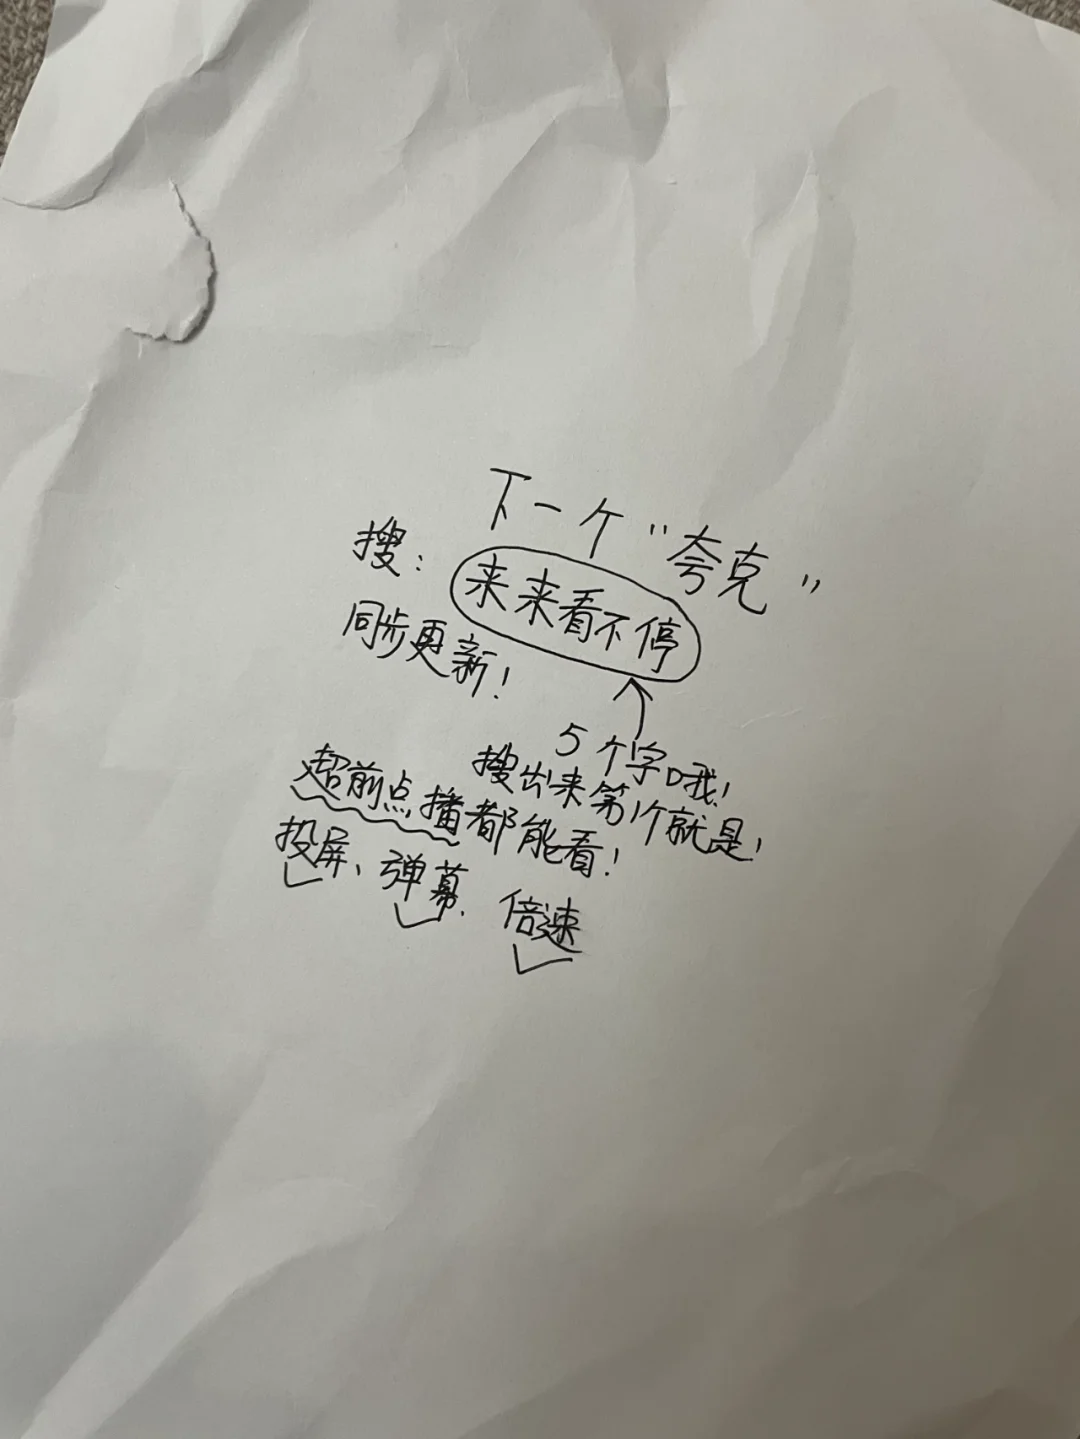 下一个"夸克"
搜:来来看不停
同步更新!
5个字哦!
搜出来第1个就是!
超前点播都能看!
投屏、弹幕、倍速